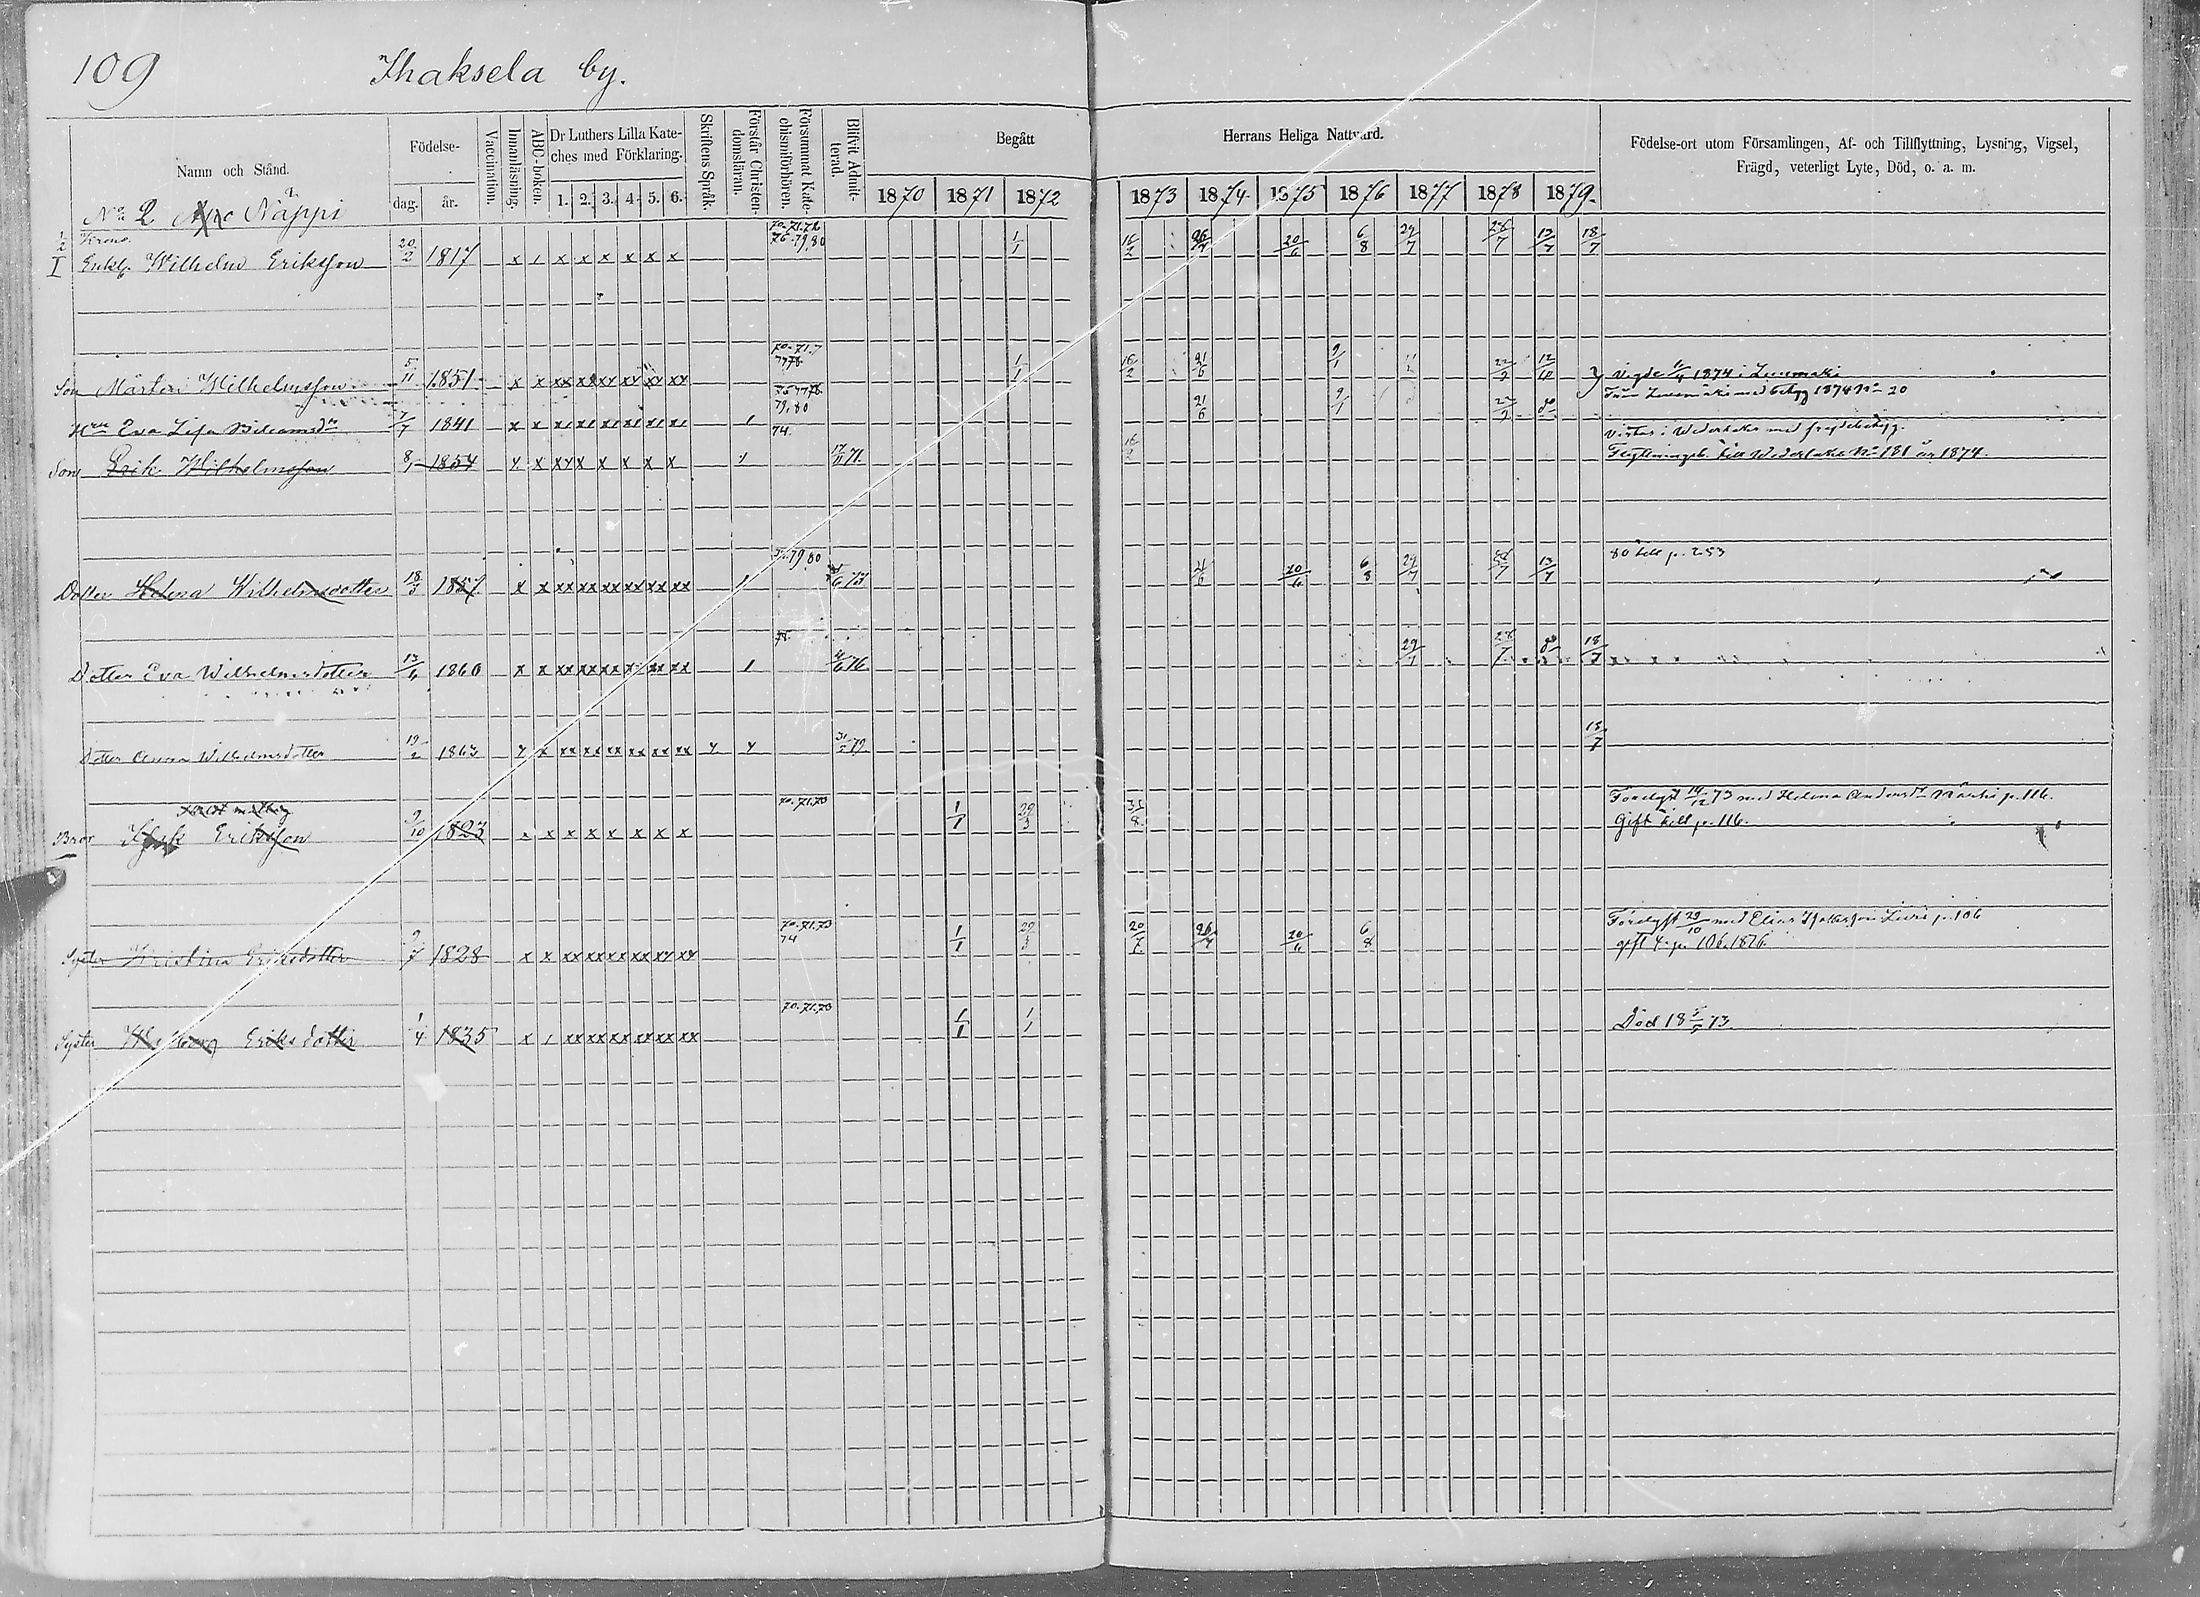 109 Ihaksela by.
Namn och Stånd.
Födelse-
dag. år.
Vaccination.
Innanläsning.
ABC-boken.
Dr Luthers Lilla Kate-
ches med Förklaring.
1. 2. 3. 4. 5. 6.
Skriftens Språk.
Förstår Christen-
domsläran.
Försummat Kate-
chismiförhören.
Blifvit Admit-
terad.
Begått Herrans Heliga Nattvard.
1870 1871 1872 1873 1874 1875 1876 1877 1878 1879
Födelse-ort utom Församlingen, Af- och Tillflyttning, Lysning, Vigsel,
Frägd, veterligt Lyte, Död, o. a. m.
No 2 Nappi
Krono
Wilhelm Eriksson 20/2 1817 x 1 x x x x x x 70.71.72 76.79.80 1/1 16/2 26/7 20/6 6/8 29/7 28/7 13/7 18/7
Son Mårten Wilhelmsson 5/11 1851 x x xx xx xx xx xx xx 1/1 16/2 21/6 9/1 12/10 Vigde 1874 i
med betyg 1874 No 20
Hru Eva Lisa 7/7 1841 x x 1 79.80 21/6 9/1
Vistas i Wederlaks med frejdebetyg.
Son Erik Wilhelmsson 8/1 1854 x x xx x x x x x 74. 71. 16/2 Flyttningsb. till Wederlaks No 181 år 1874.
80 till p. 253
Dotter Helena Wilhelmsdotter 18/3 1857 x x xx xx xx xx xx xx 1 79.80 73 21/6 20/6 6/8 29/7 28/7 13/7
Dotter Eva Wilhelmsdotter 13/6 1860 x x xx xx xx xx xx xx 1 78. 76 29/7 28/7 18/7
Dotter Anna Wilhelmsdotter 19/2 1863 x x xx xx xx xx xx xx 79 18/7
Bror Eriksson 9/10 1823 x x x x x x x x 70.71.73 1/1 29/3 31/8 Förelyst 14/12 73 med Helena Andersdr p. 116.
Gift till p. 116.
Syster Kristina Eriksdotter 9/7 1828 x x xx xx xx xx xx xx 70.71.73 74 1/1 29/3 20/7 26/7 20/6 6/8 Förelyst 29/10 med Elias p. 106
gift p. 106 1876
Syster Eriksdotter 1/4 1835 x 1 xx xx xx xx xx xx 70.71.73 1/1 1/1 Död 18 73